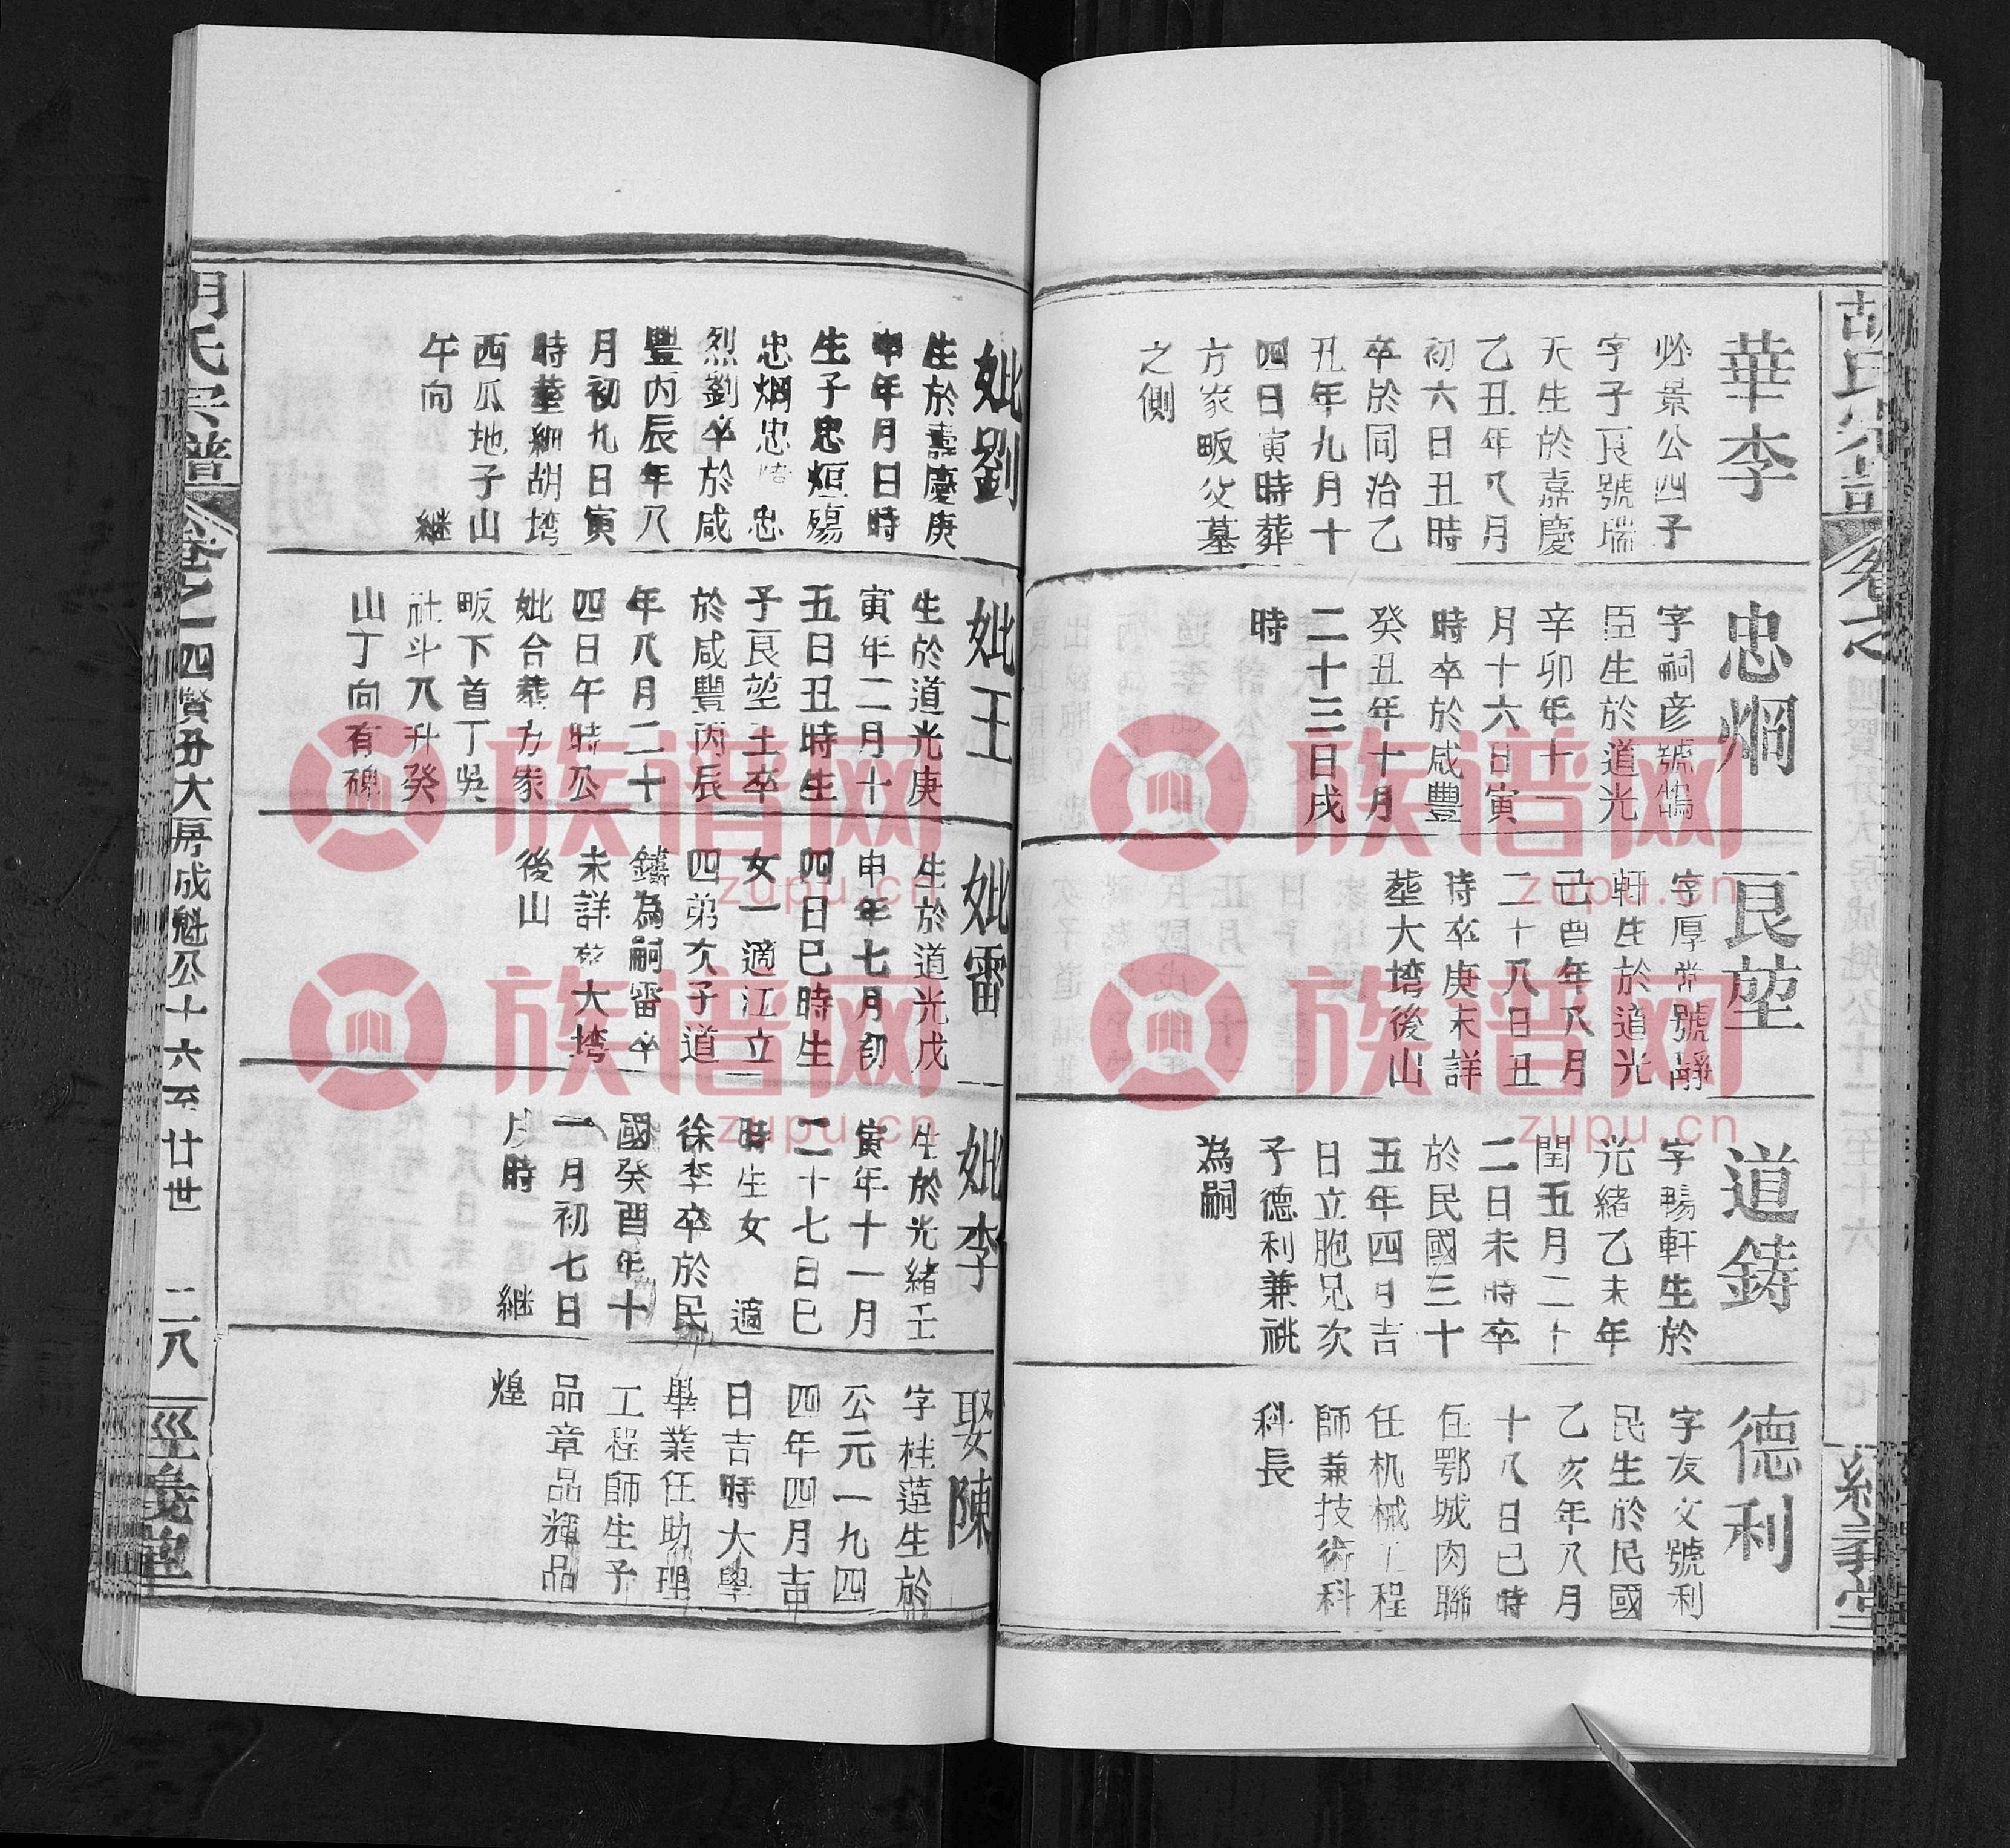 胡氏宗譜
卷之
經義堂
華李
必景公四子
字子良號瑞
天生於嘉慶
乙丑年八月
初六日丑時
卒於同治乙
丑年九月十
四日寅時葬
方家畈父墓
之側
忠烱
字嗣彥號鵠
臣生於道光
辛卯年十一
月十六日寅
時卒於咸豐
癸丑年十月
二十三日戌
時
良堃
字厚常號靜
軒生於道光
己酉年八月
二十八日丑
時卒庚未詳
塟大塆後山
道鑄
字暢軒生於
光緒乙未年
閏五月二十
二日未時卒
於民國三十
五年四月吉
日立胞兄次
子德利兼祧
為嗣
德利
字友文號利
民生於民國
乙亥年八月
十八日巳時
任鄂城肉聯
任机械工程
師兼技術科
科長
妣劉
生於嘉慶庚
申年月日時
生子忠烜殤
忠烱忠 忠
烈劉卒於咸
豐丙辰年八
月初九日寅
時塟細胡塆
西瓜地子山
午向 繼
妣王
生於道光庚
寅年二月十
五日丑時生
子良堃王卒
於咸豐丙辰
年八月二十
四日午時公
妣合塟方家
畈下首丁吳
社斗八升癸
山丁向有碑
妣雷
生於道光戊
申年七月初
四日巳時生
女一適江立
四弟次子道
鑄為嗣雷卒
未詳塟大塆
後山
妣李
生於光緒壬
寅年十一月
二十七日巳
時生女 適
徐李卒於民
國癸酉年十
一月初七日
戌時 繼
娶陳
字桂蓮生於
公元一九四
四年四月吉
日吉時大學
畢業任助理
工程師生子
品章品輝品
煌
胡氏宗譜
卷之一四賢分大房成魁公十六至廿世 二八
經義堂
族谱网
zupu.cn
族谱网
zupu.cn
族谱网
zupu.cn
族谱网
zupu.cn